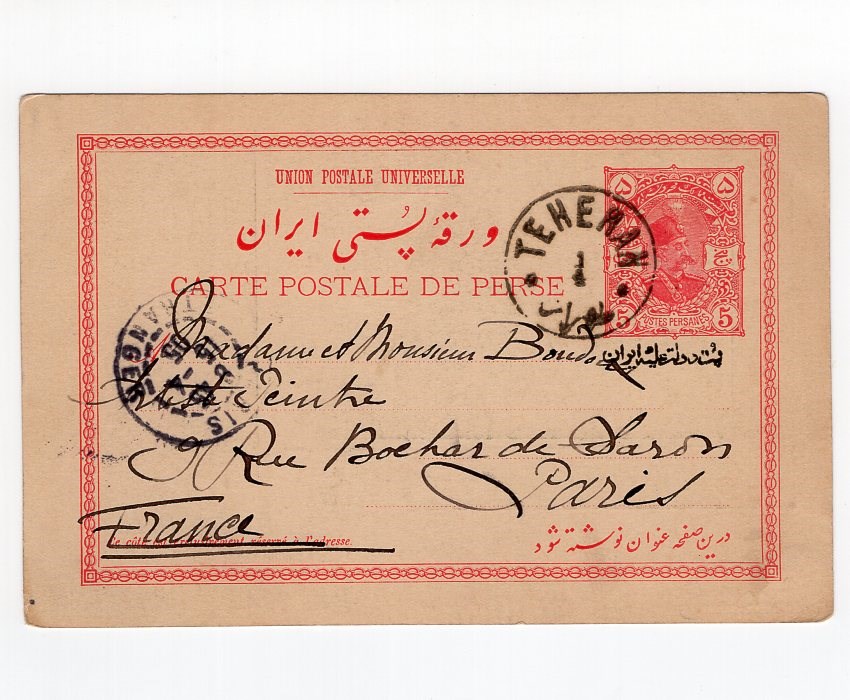 UNION POSTALE UNIVERSELLE
ورقهٔ پُستی ایران
CARTE POSTALE DE PERSE
۵ ۵
5 POSTES PERSANES 5
TEHERAN
1
4
طهران
پُست دولت علیه ایران
PARIS ETRANGER
Madame et Monsieur
Artiste Peintre
9 Rue Bochar de Saron
Paris
France
Ce côté est exclusivement réservé à l'adresse.
درین صفحه عنوان نوشته شود